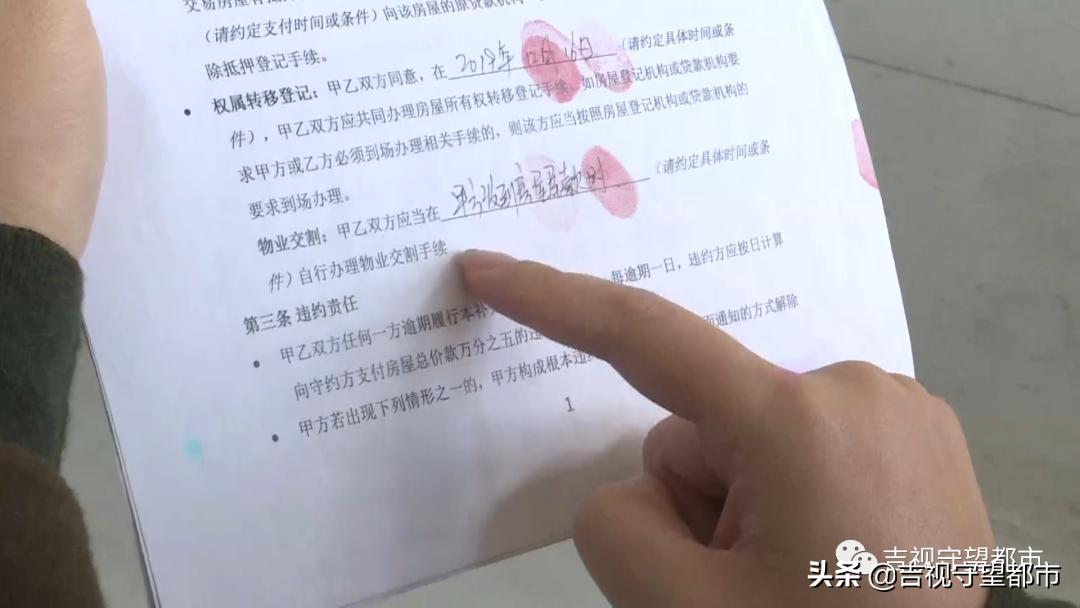 （请约定支付时间或条件）向该房屋的原贷款机构
除抵押登记手续。
• 权属转移登记：甲乙双方同意，在2019年12月16日（请约定具体时间或条
件），甲乙双方应共同办理房屋所有权转移登记手续，如房屋登记机构或贷款机构要
求甲方或乙方必须到场办理相关手续的，则该方应当按照房屋登记机构或贷款机构的
要求到场办理。
物业交割：甲乙双方应当在 收到房屋 款时（请约定具体时间或条
件）自行办理物业交割手续
第三条 违约责任
• 甲乙双方任何一方逾期履行本补 每逾期一日，违约方应按日计算
向守约方支付房屋总价款万分之五的违 面通知的方式解除
• 甲方若出现下列情形之一的，甲方构成根本违
1
吉视守望都市
头条 @吉视守望都市